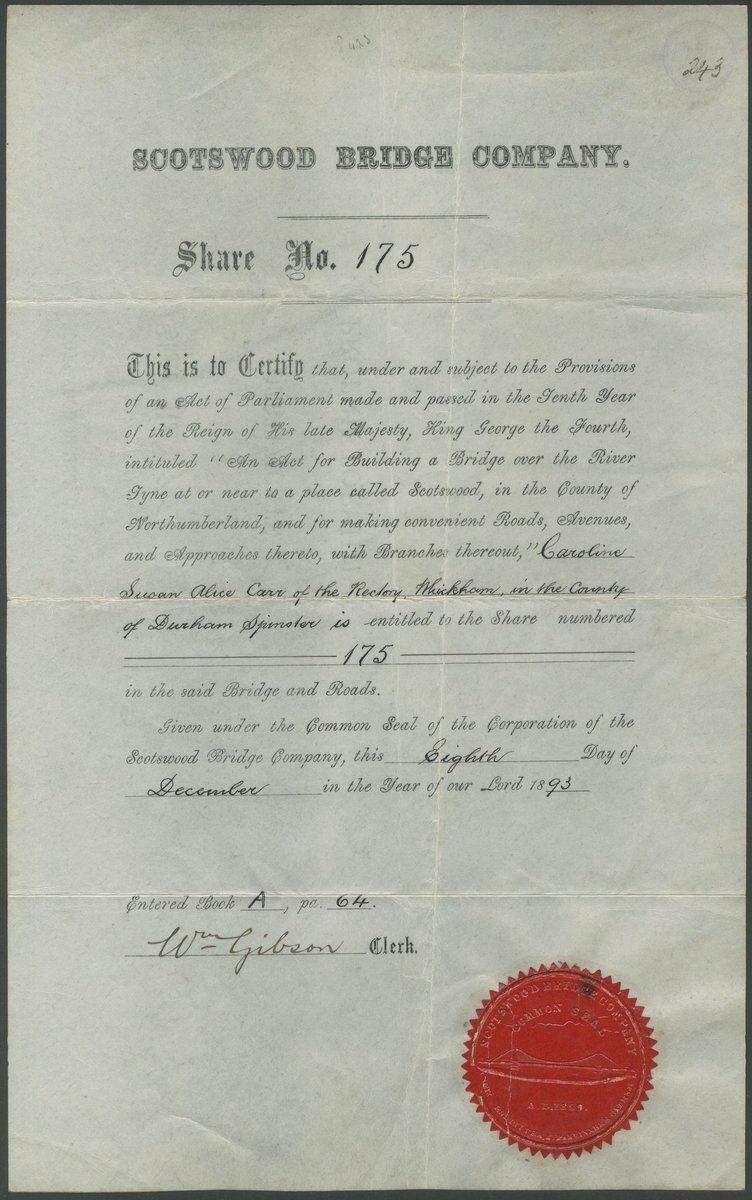 243
SCOTSWOOD BRIDGE COMPANY.
Share No. 175
This is to Certify that, under and subject to the Provisions
of an Act of Parliament made and passed in the Tenth Year
of the Reign of His late Majesty, King George the Fourth,
intituled "An Act for Building a Bridge over the River
Tyne at or near to a place called Scotswood, in the County of
Northumberland, and for making convenient Roads, Avenues,
and Approaches thereto, with Branches thereout," Caroline
Susan Alice Carr of the Rectory, Whickham, in the County
of Durham Spinster is entitled to the Share numbered
175
in the said Bridge and Roads.
Given under the Common Seal of the Corporation of the
Scotswood Bridge Company, this Eighth Day of
December in the Year of our Lord 1893
Entered Book A, pa. 64.
Wm Gibson Clerk.
SCOTSWOOD BRIDGE COMPANY
COMMON SEAL